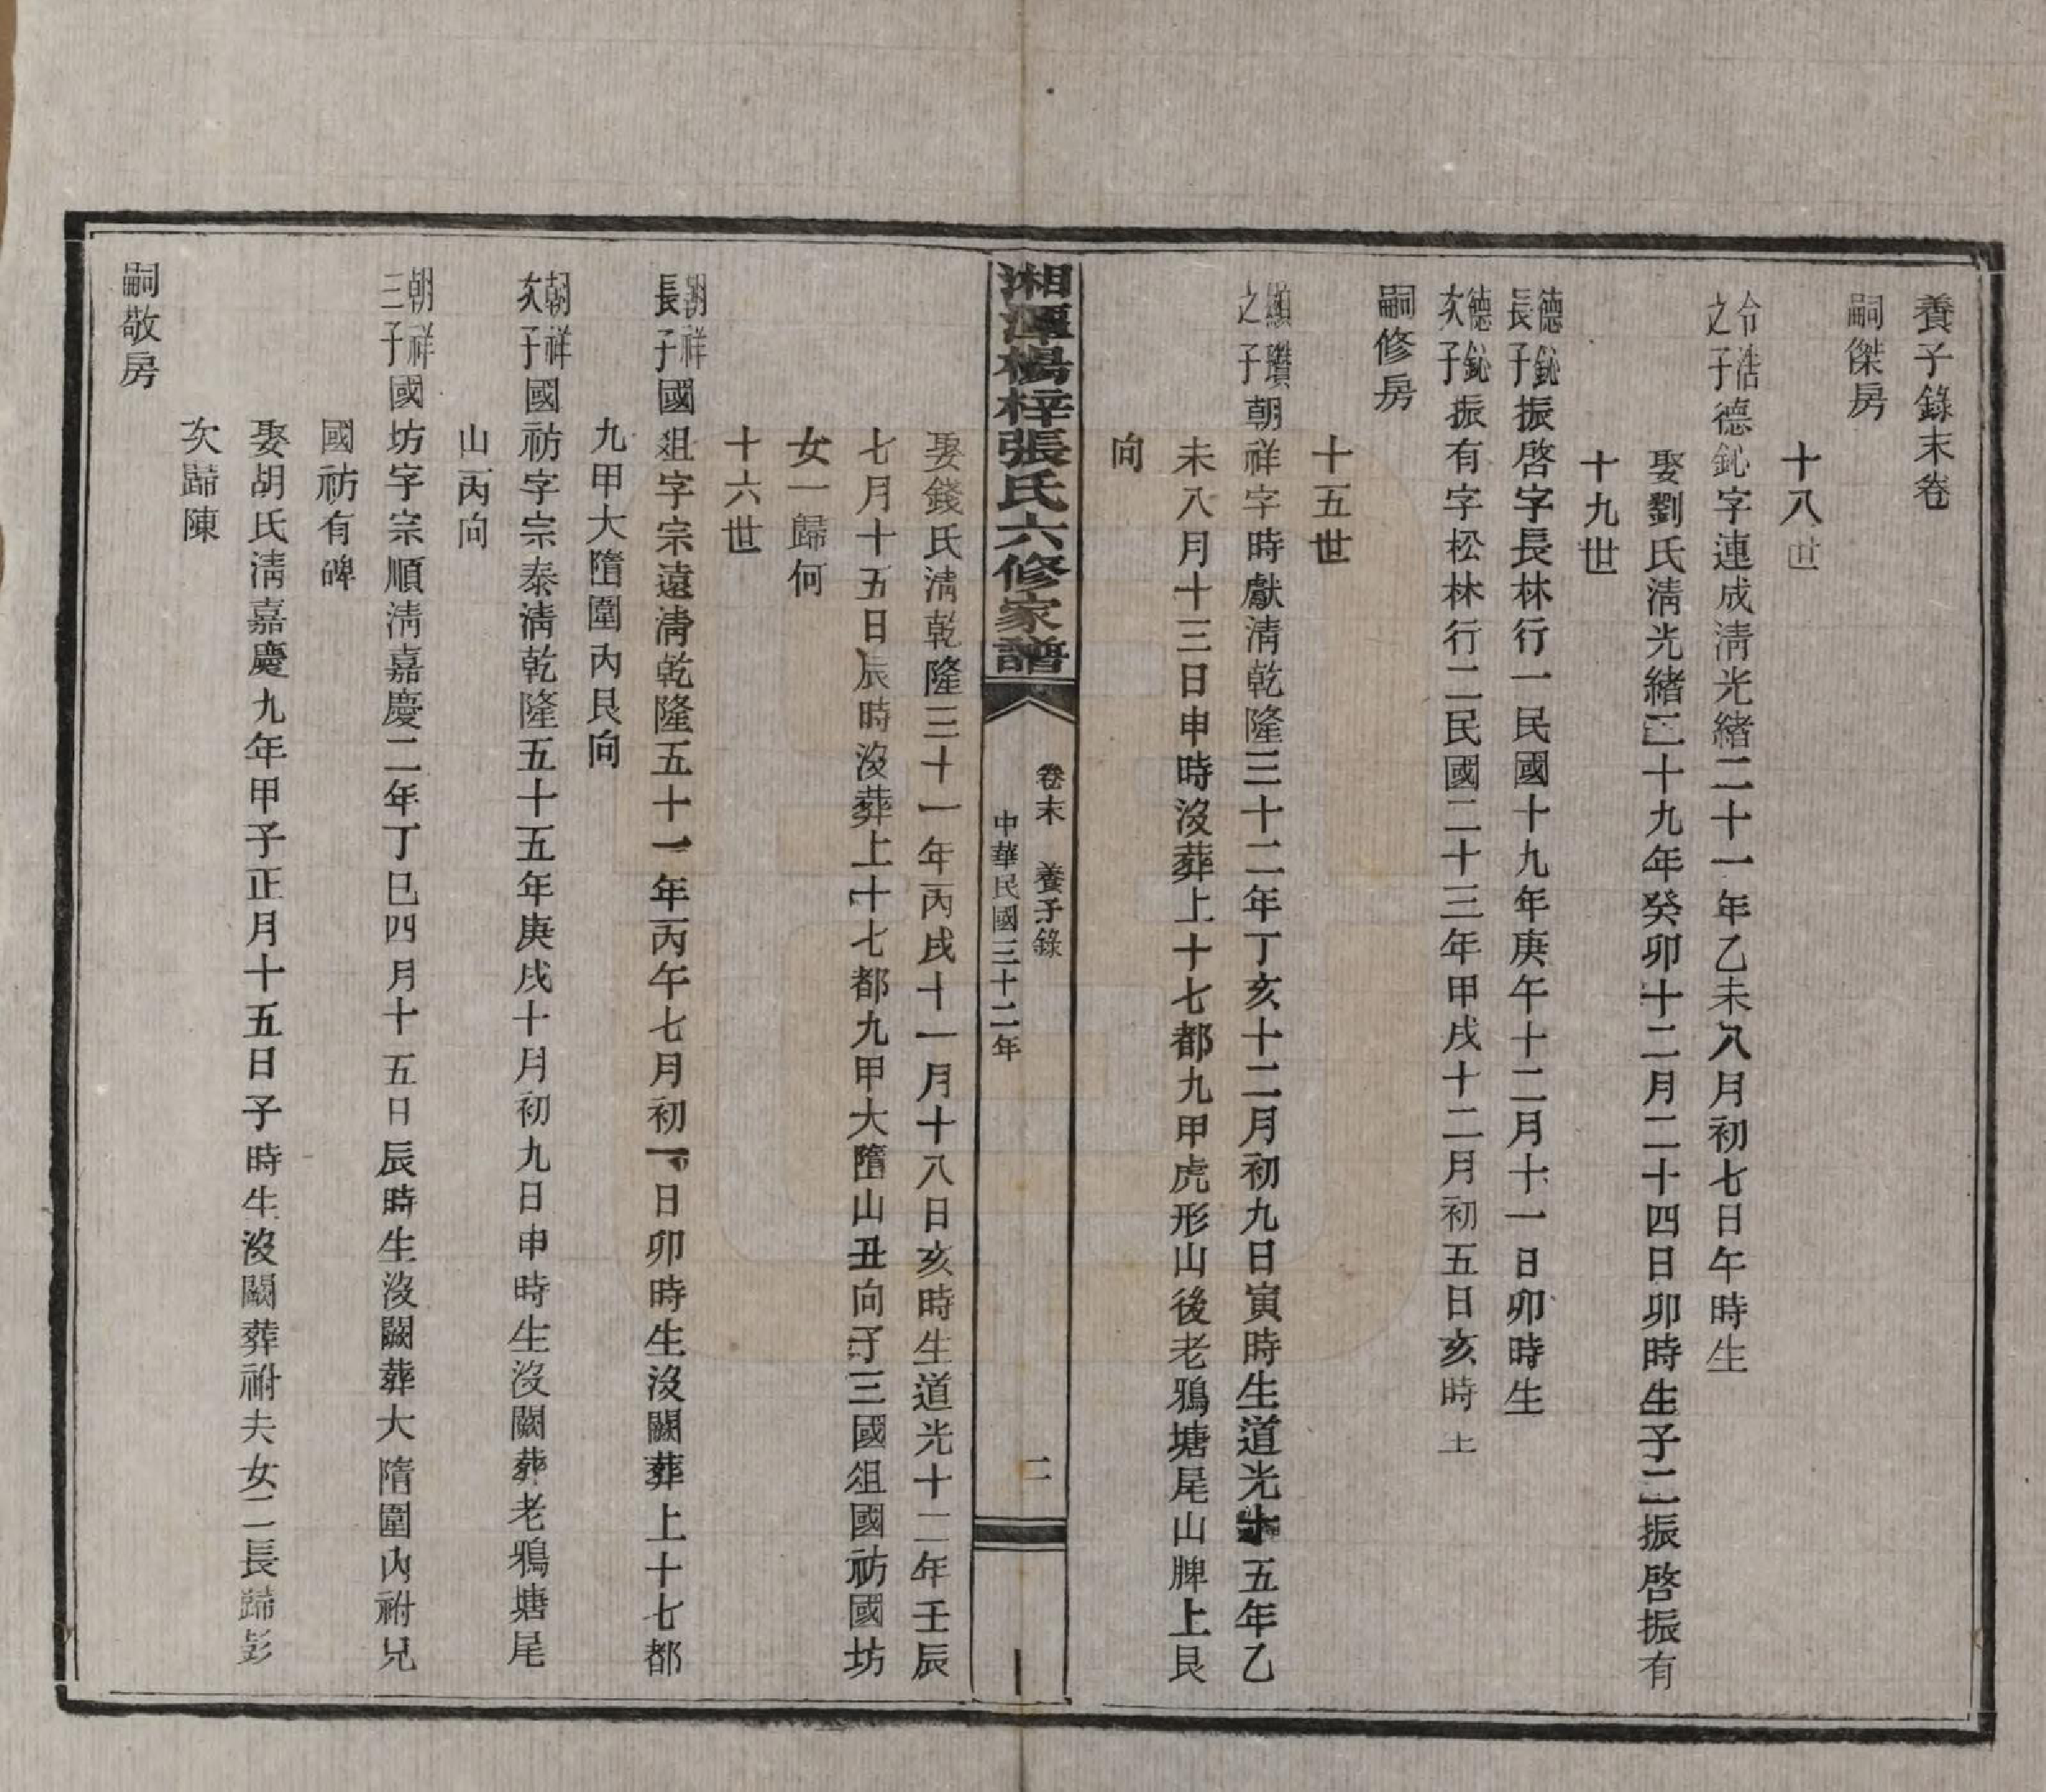 養子錄末卷
嗣傑房
十八世
令浩之子德鈊字連成淸光緒二十一年乙未八月初七日午時生
娶劉氏淸光緒二十九年癸卯十二月二十四日卯時生子二振啓振有
十九世
德鈊長子振啓字長林行一民國十九年庚午十二月十一日卯時生
德鈊次子振有字松林行二民國二十三年甲戌十二月初五日亥時生
嗣修房
十五世
顯瓚之子朝祥字時獻淸乾隆三十二年丁亥十二月初九日寅時生道光十五年乙
未八月十三日申時沒葬上十七都九甲虎形山後老鴉塘尾山脾上艮
向
湘潭楊梓張氏六修家譜
卷末 養子錄
中華民國三十二年
二
娶錢氏淸乾隆三十一年丙戌十一月十八日亥時生道光十二年壬辰
七月十五日辰時沒葬上十七都九甲大隋山丑向子三國俎國祊國坊
女一歸何
十六世
朝祥長子國俎字宗遠淸乾隆五十一年丙午七月初一日卯時生沒闕葬上十七都
九甲大隋圍內艮向
朝祥次子國祊字宗泰淸乾隆五十五年庚戌十月初九日申時生沒闕葬老鴉塘尾
山丙向
朝祥三子國坊字宗順淸嘉慶二年丁巳四月十五日辰時生沒闕葬大隋圍內祔兄
國祊有碑
娶胡氏淸嘉慶九年甲子正月十五日子時生沒闕葬祔夫女二長歸彭
次歸陳
嗣敬房